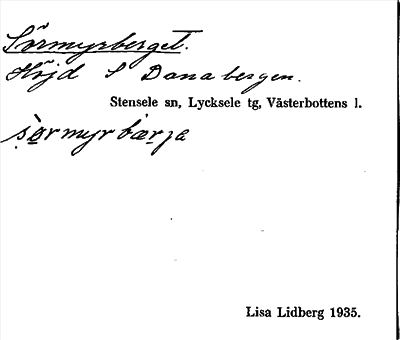 Sörmyrberget.
Höjd S Danabergen.
Stensele sn, Lycksele tg, Västerbottens l.
sörmyrbærja
Lisa Lidberg 1935.